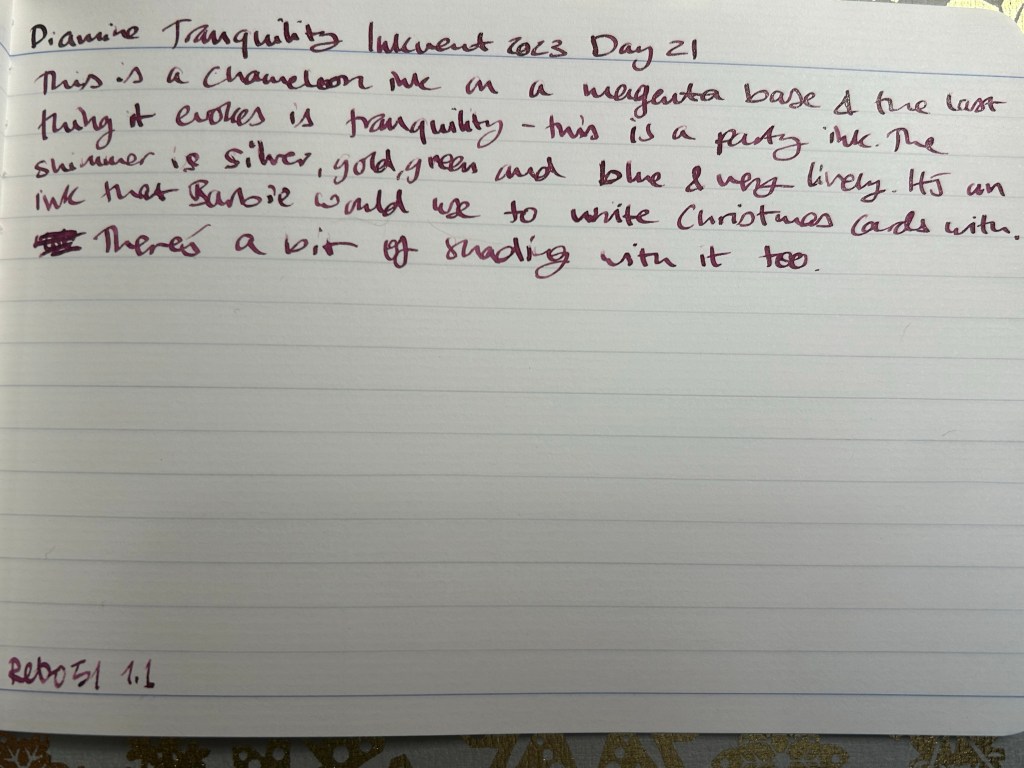 Diamine Tranquility Inkvent 2023 Day 21
This is a Chameleon ink on a magenta base & the last
thing it evokes is tranquility - this is a party ink. The
shimmer is silver, gold, green and blue & very lively. It's an
ink that Barbie would use to write Christmas Cards with.
There's a bit of shading with it too.
Rebo51 1.1